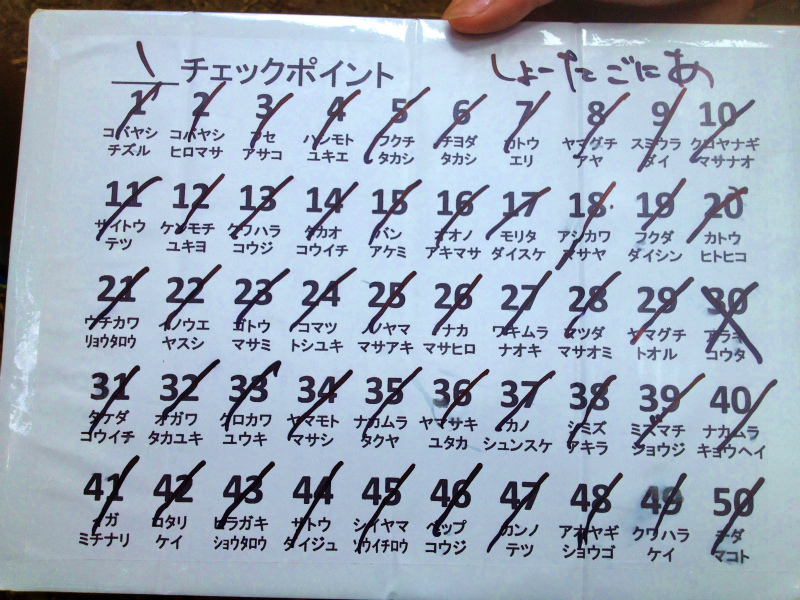 1 チェックポイント しょーたごにあ
1 2 3 4 5 6 7 8 9 10
コバヤシ コバヤシ フセ ハシモト フクチ チヨダ カトウ ヤマグチ スミウラ クロヤナギ
チズル ヒロマサ アサコ ユキエ タカシ タカシ エリ アヤ ダイ マサナオ
11 12 13 14 15 16 17 18 19 20
サイトウ ケンモチ クワハラ タカオ バン オオノ モリタ アシカワ フクダ カトウ
テツ ユキヨ コウジ コウイチ アケミ アキマサ ダイスケ マサヤ ダイシン ヒトヒコ
21 22 23 24 25 26 27 28 29 30
ウチカワ イノウエ ゴトウ コマツ ノヤマ ナカ ワキムラ マツダ ヤマグチ アラキ
リョウタロウ ヤスシ マサミ トシユキ マサアキ マサヒロ ナオキ マサオミ トオル コウタ
31 32 33 34 35 36 37 38 39 40
タケダ オガワ クロカワ ヤマモト ナカムラ ヤマサキ カノ シミズ ミズマチ ナカムラ
コウイチ タカユキ ユウキ マサシ タクヤ ユタカ シュンスケ アキラ ショウジ キョウヘイ
41 42 43 44 45 46 47 48 49 50
コタリ ヒラガキ サトウ シイヤマ ベップ カンノ アオヤギ クワハラ
ミチナリ ケイ ショウタロウ ダイジュ ソウイチロウ コウジ テツ ショウゴ ケイ マコト